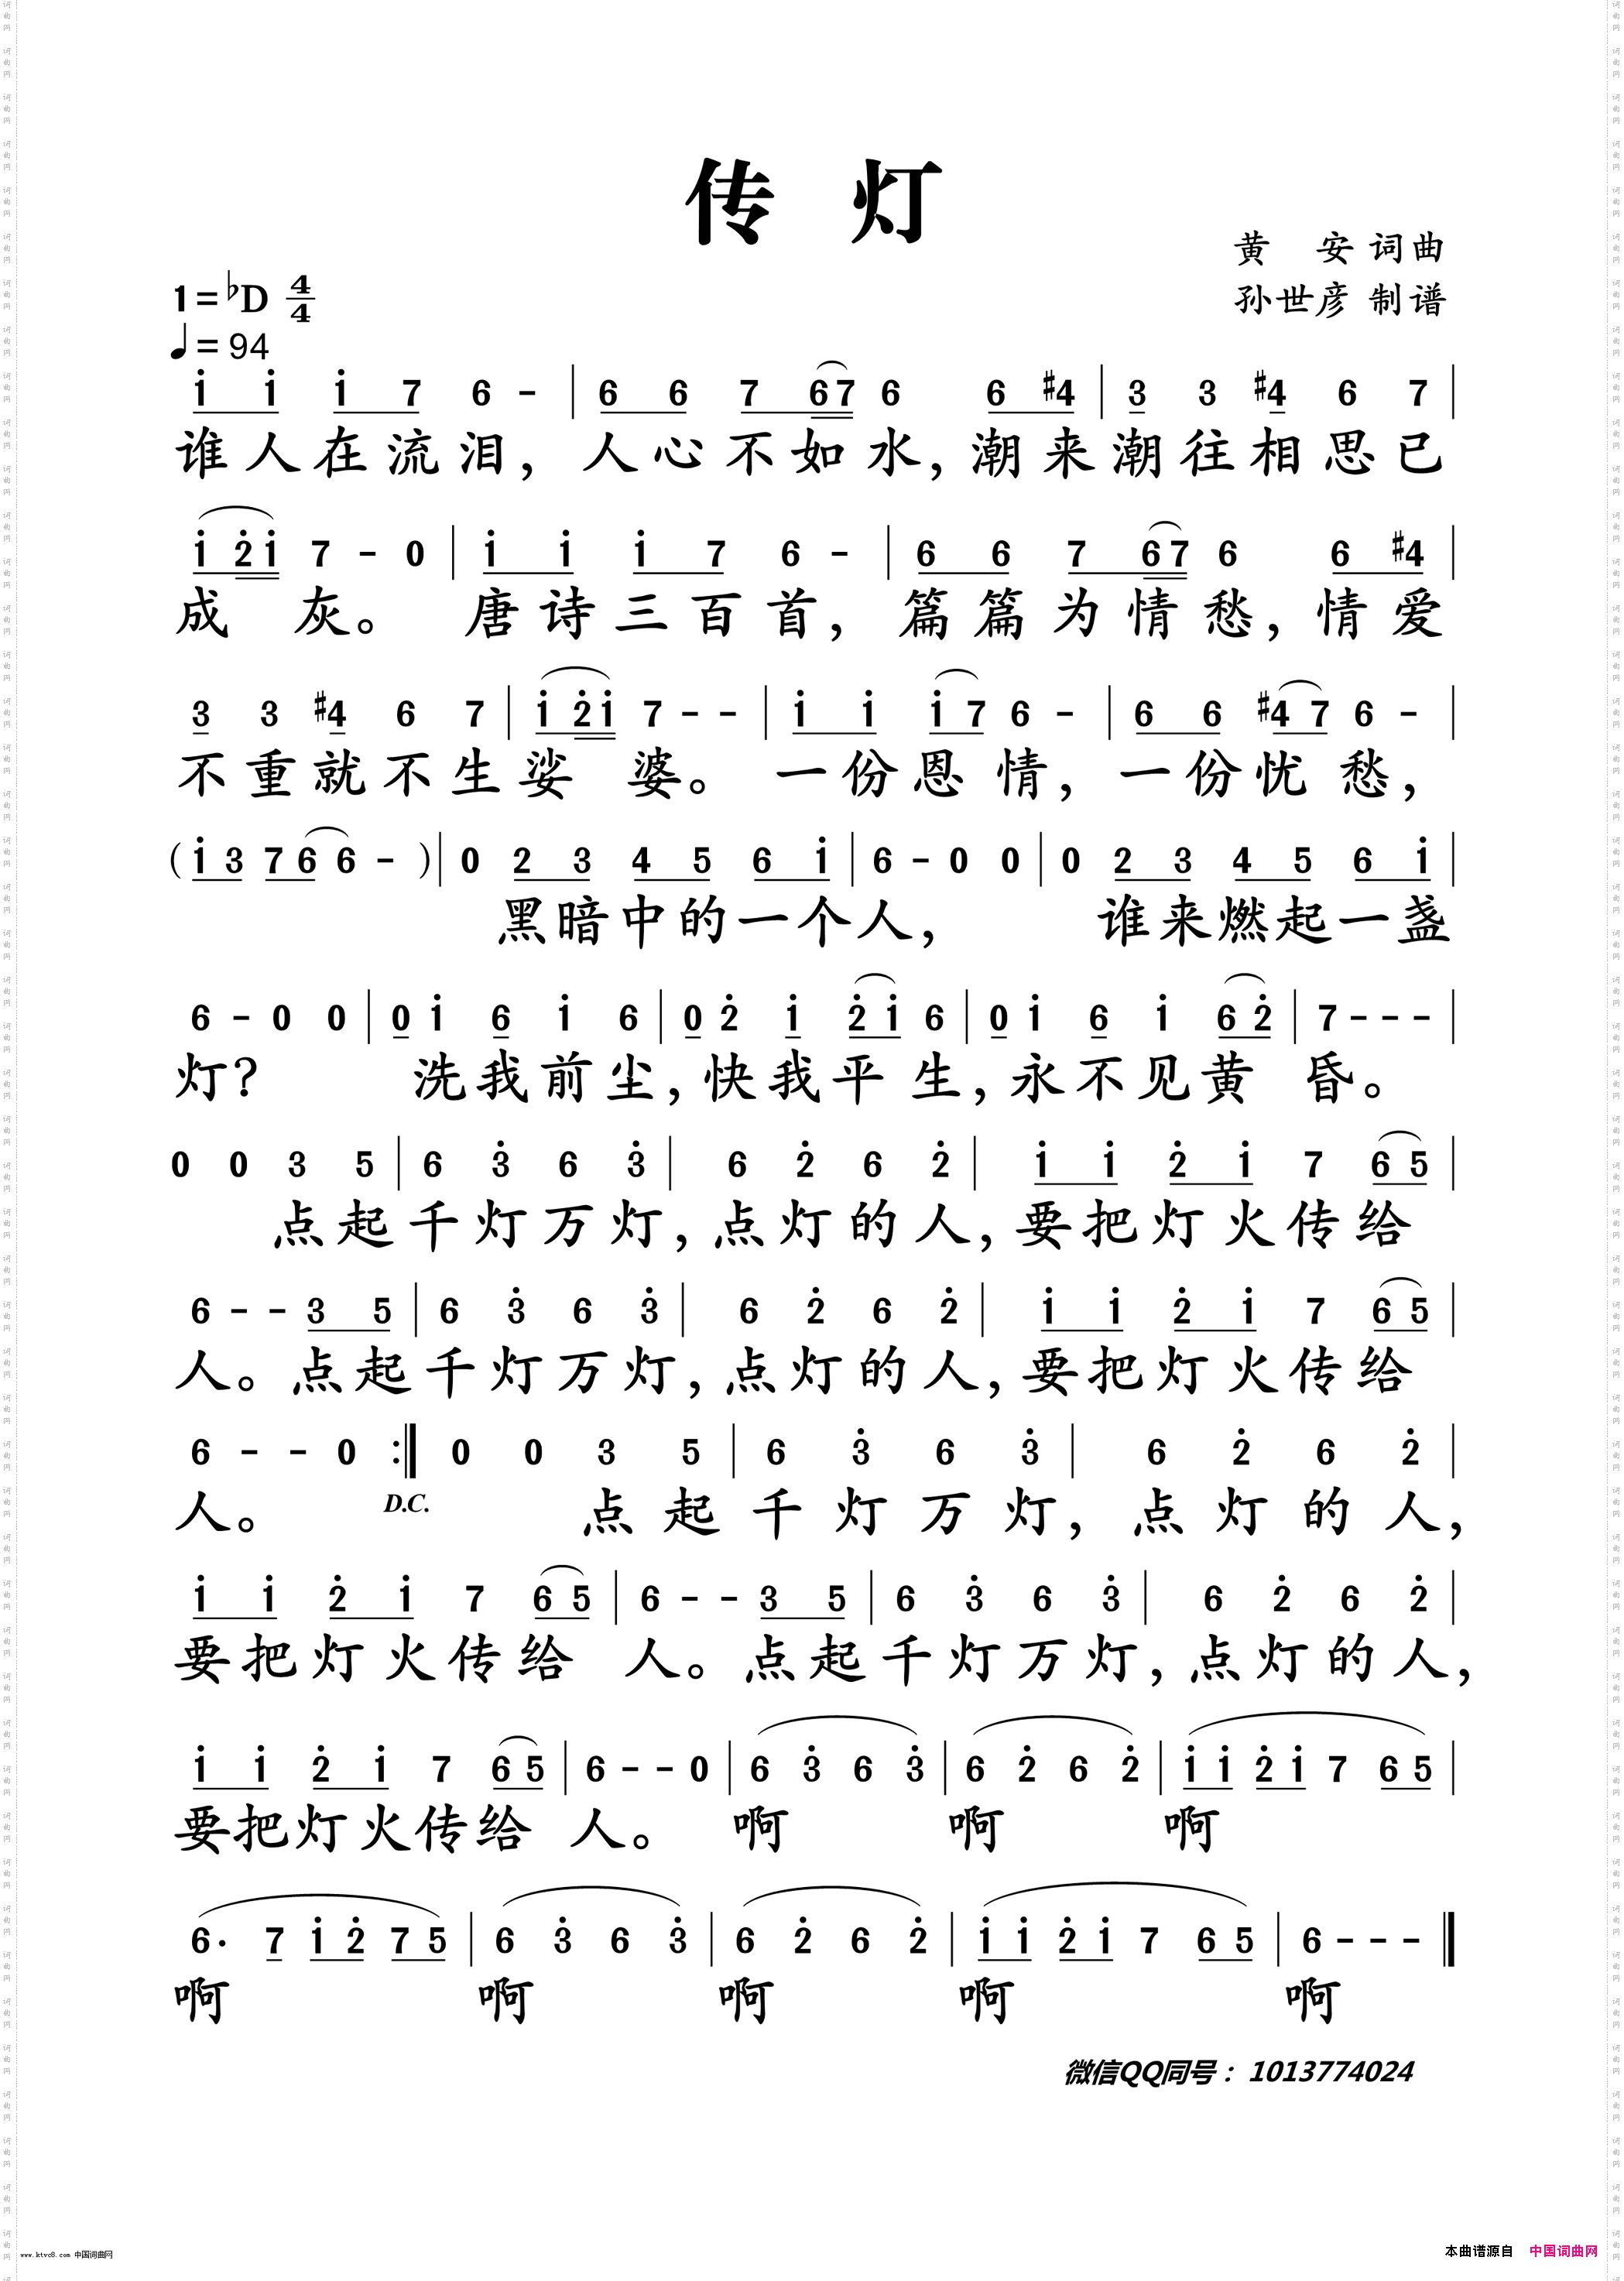 传 灯
黄 安 词曲
孙世彦 制谱
1=♭D 4/4
♩= 94
i i i 7 6 - | 6 6 7 67 6 6 #4 | 3 3 #4 6 7 |
谁人在流泪，人心不如水，潮来潮往相思已
i 2̇ i 7 - 0 | i i i 7 6 - | 6 6 7 67 6 6 #4 |
成 灰。 唐诗三百首，篇篇为情愁，情爱
3 3 #4 6 7 | i 2̇ i 7 - - | i i i 7 6 - | 6 6 #4 7 6 - |
不重就不生娑 婆。一份恩情，一份忧愁，
( i 3 7 6 6 - ) | 0 2 3 4 5 6 i | 6 - 0 0 | 0 2 3 4 5 6 i |
黑暗中的一个人， 谁来燃起一盏
6 - 0 0 | 0 i 6 i 6 | 0 2̇ i 2̇ i 6 | 0 i 6 i 6 2̇ | 7 - - - |
灯？ 洗我前尘，快我平生，永不见黄 昏。
0 0 3 5 | 6 3̇ 6 3̇ | 6 2̇ 6 2̇ | i i 2̇ i 7 6 5 |
点起千灯万灯，点灯的人，要把灯火传给
6 - - 3 5 | 6 3̇ 6 3̇ | 6 2̇ 6 2̇ | i i 2̇ i 7 6 5 |
人。点起千灯万灯，点灯的人，要把灯火传给
6 - - 0 :‖ 0 0 3 5 | 6 3̇ 6 3̇ | 6 2̇ 6 2̇ |
人。 D.C. 点起千灯万灯，点灯的人，
i i 2̇ i 7 6 5 | 6 - - 3 5 | 6 3̇ 6 3̇ | 6 2̇ 6 2̇ |
要把灯火传给 人。点起千灯万灯，点灯的人，
i i 2̇ i 7 6 5 | 6 - - 0 | 6 3̇ 6 3̇ | 6 2̇ 6 2̇ | i i 2̇ i 7 6 5 |
要把灯火传给 人。 啊 啊 啊
6· 7 i 2̇ 7 5 | 6 3̇ 6 3̇ | 6 2̇ 6 2̇ | i i 2̇ i 7 6 5 | 6 - - - ‖
啊 啊 啊 啊 啊
微信QQ同号：1013774024
www.ktvc8.com 中国词曲网
本曲谱源自 中国词曲网